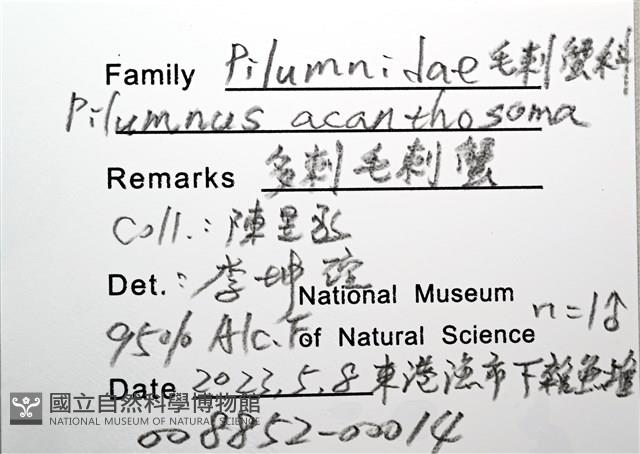 Family Pilumnidae 毛刺蟹科
Pilumnus acanthosoma
Remarks 多刺毛刺蟹
Coll.: 陳昱丞
Det.: 李坤瑄
National Museum
95% Alc.F. of Natural Science n=1♂
Date 2023.5.8 東港漁市下雜魚堆
國立自然科學博物館
NATIONAL MUSEUM OF NATURAL SCIENCE
008852-00014